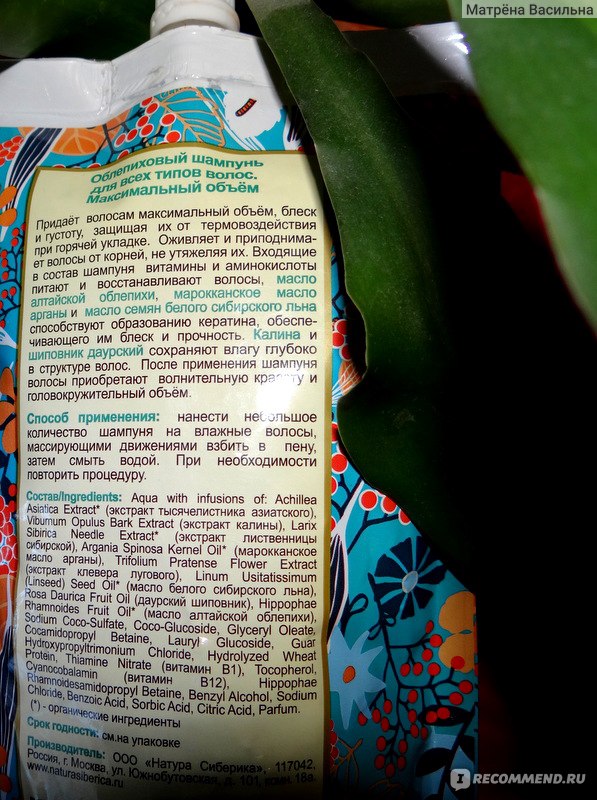 Матрёна Васильна
Облепиховый шампунь
для всех типов волос.
Максимальный объём
Придаёт волосам максимальный объём, блеск
и густоту, защищая их от термовоздействия
при горячей укладке. Оживляет и приподнима-
ет волосы от корней, не утяжеляя их. Входящие
в состав шампуня витамины и аминокислоты
питают и восстанавливают волосы, масло
алтайской облепихи, марокканское масло
арганы и масло семян белого сибирского льна
способствуют образованию кератина, обеспе-
чивающего им блеск и прочность. Калина и
шиповник даурский сохраняют влагу глубоко
в структуре волос. После применения шампуня
волосы приобретают волнительную красоту и
головокружительный объём.
Способ применения: нанести небольшое
количество шампуня на влажные волосы,
массирующими движениями взбить в пену,
затем смыть водой. При необходимости
повторить процедуру.
Состав/Ingredients: Aqua with infusions of: Achillea
Asiatica Extract* (экстракт тысячелистника азиатского),
Viburnum Opulus Bark Extract (экстракт калины), Larix
Sibirica Needle Extract* (экстракт лиственницы
сибирской), Argania Spinosa Kernel Oil* (марокканское
масло арганы), Trifolium Pratense Flower Extract
(экстракт клевера лугового), Linum Usitatissimum
(Linseed) Seed Oil* (масло белого сибирского льна),
Rosa Daurica Fruit Oil (даурский шиповник), Hippophae
Rhamnoides Fruit Oil* (масло алтайской облепихи),
Sodium Coco-Sulfate, Coco-Glucoside, Glyceryl Oleate,
Cocamidopropyl Betaine, Lauryl Glucoside, Guar
Hydroxypropyltrimonium Chloride, Hydrolyzed Wheat
Protein, Thiamine Nitrate (витамин B1), Tocopherol,
Cyanocobalamin (витамин B12), Hippophae
Rhamnoidesamidopropyl Betaine, Benzyl Alcohol, Sodium
Chloride, Benzoic Acid, Sorbic Acid, Citric Acid, Parfum.
(*) - органические ингредиенты
Срок годности: см.на упаковке
Производитель: ООО «Натура Сиберика», 117042,
Россия, г. Москва, ул. Южнобутовская, д. 101,
www.naturasiberica.ru
IRECOMMEND.RU